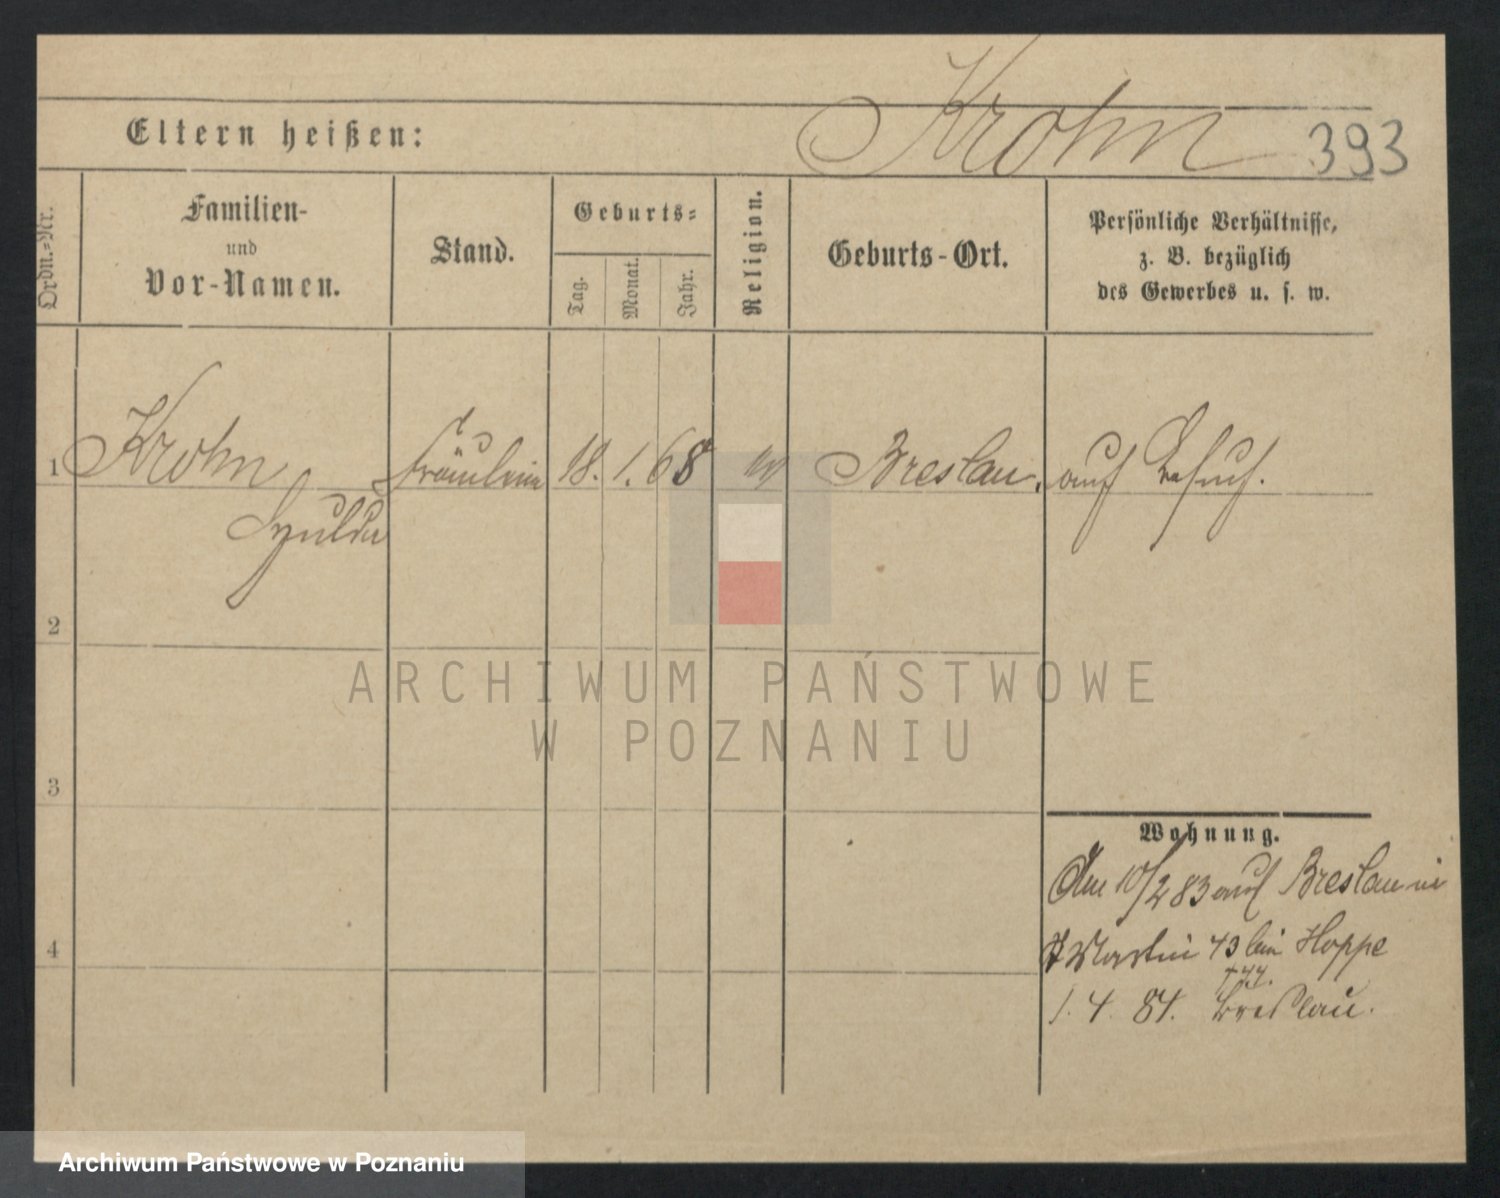 Krohn 393
Eltern heißen:
Ordn.-Nr.
Familien-
und
Vor-Namen.
Stand.
Geburts-
Tag.
Monat.
Jahr.
Religion.
Geburts-Ort.
Persönliche Verhältnisse,
z. B. bezüglich
des Gewerbes u. s. w.
1 Krohn Fräulein 18. 1. 68 Breslau. auf Besuch.
2
3
4
Wohnung.
Am 10/2 83 auf Breslau in
St Martin 43 bei Hoppe
1. 4. 84. Breslau.
ARCHIWUM PAŃSTWOWE
W POZNANIU
Archiwum Państwowe w Poznaniu